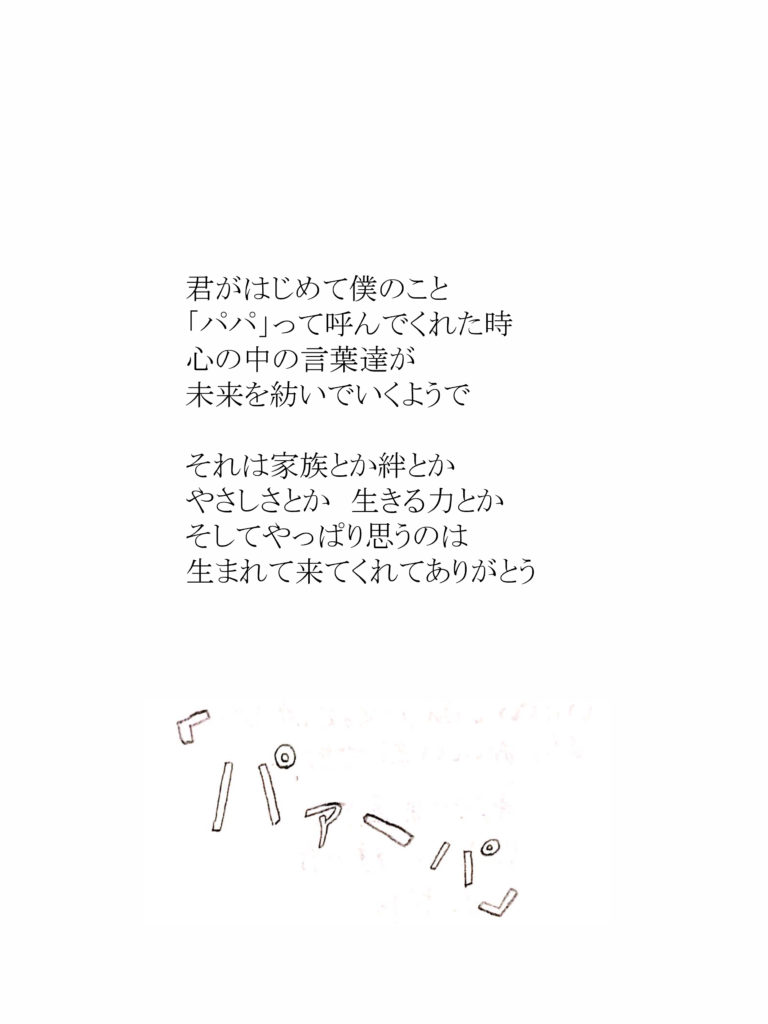 君がはじめて僕のこと
「パパ」って呼んでくれた時
心の中の言葉達が
未来を紡いでいくようで
それは家族とか絆とか
やさしさとか　生きる力とか
そしてやっぱり思うのは
生まれて来てくれてありがとう
「パァーパ」